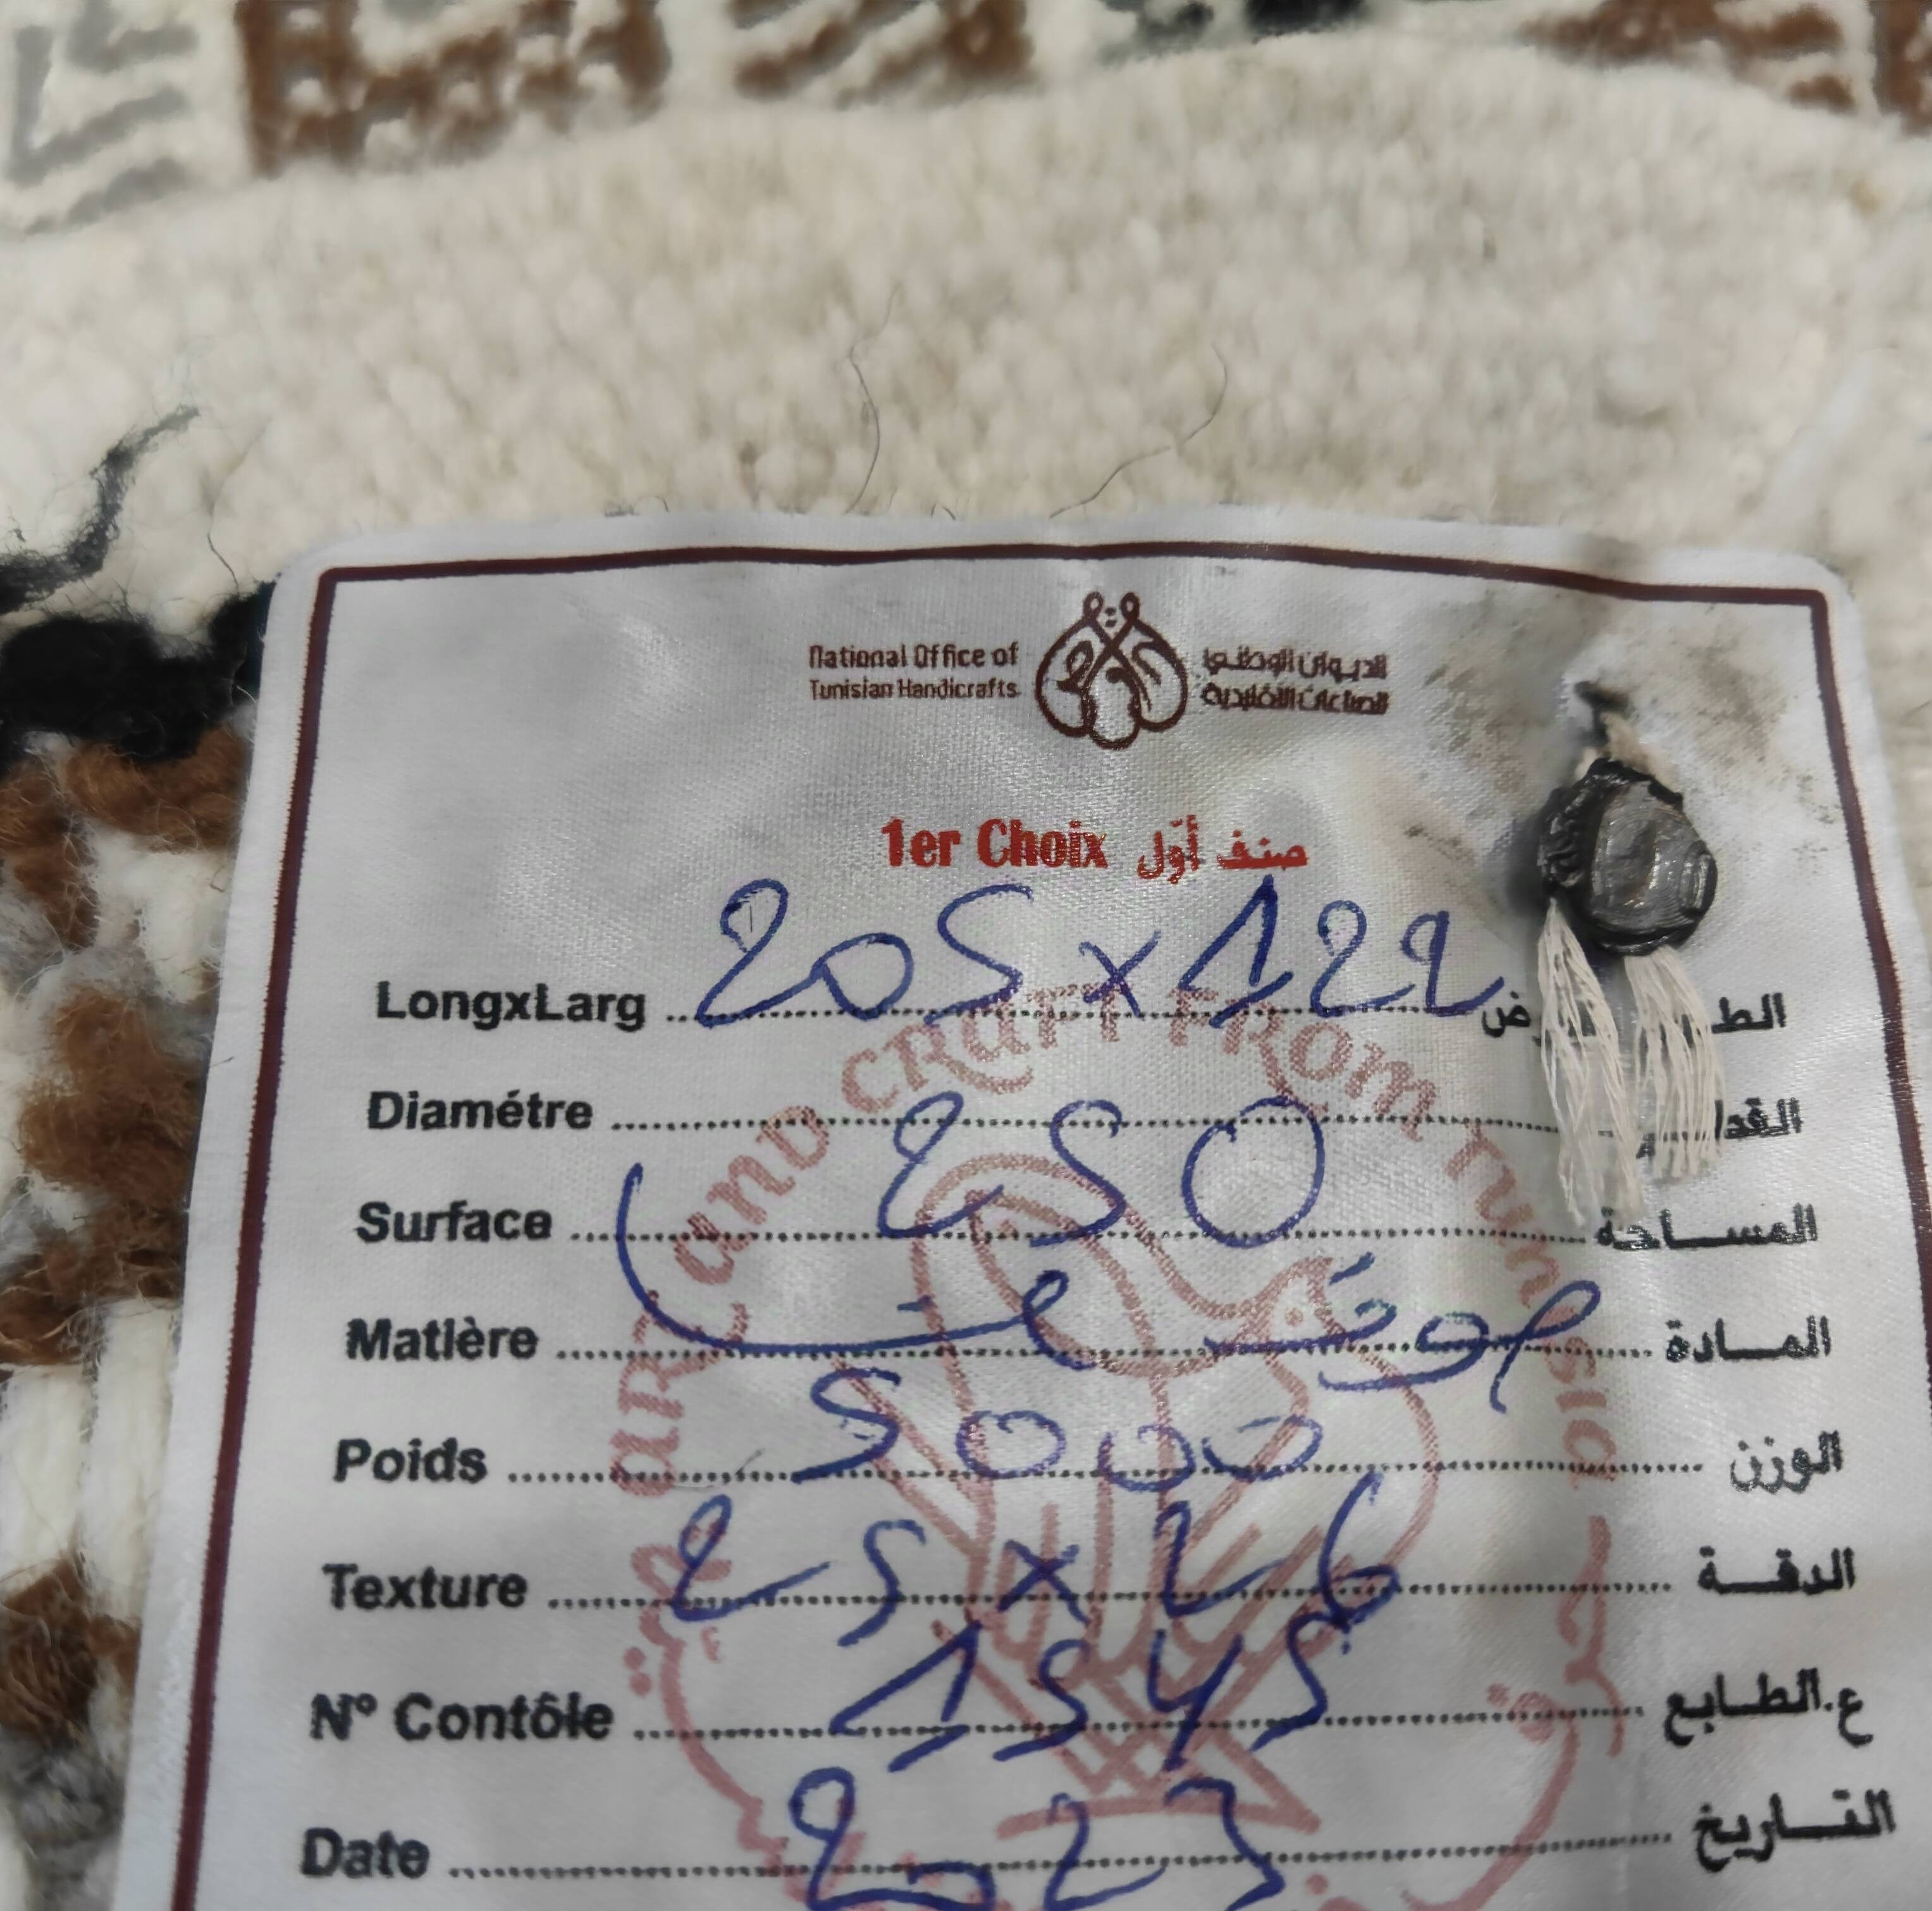 National Office of الديوان الوطني
Tunisian Handicrafts للصناعات التقليدية
1er Choix صنف أوّل
LongxLarg 205 x 122 الط ض
Diamétre القد
Surface 250 المساحة
Matière صوف المادة
Poids 5000 الوزن
Texture 25 x 26 الدقة
N° Contôle 1545 ع.الطابع
Date 2023 التاريخ
ART AND CRAFT FROM TUNISIA